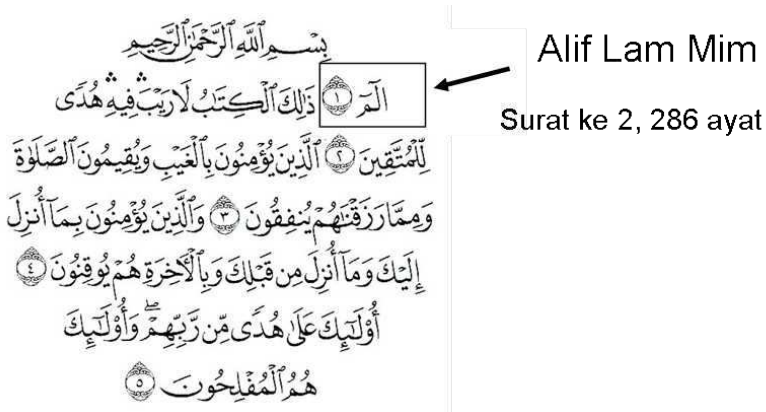 بِسْمِ ٱللَّهِ ٱلرَّحْمَٰنِ ٱلرَّحِيمِ
الٓمٓ ١ ذَٰلِكَ ٱلْكِتَٰبُ لَا رَيْبَ ۛ فِيهِ ۛ هُدًى
لِّلْمُتَّقِينَ ٢ ٱلَّذِينَ يُؤْمِنُونَ بِٱلْغَيْبِ وَيُقِيمُونَ ٱلصَّلَوٰةَ
وَمِمَّا رَزَقْنَٰهُمْ يُنفِقُونَ ٣ وَٱلَّذِينَ يُؤْمِنُونَ بِمَآ أُنزِلَ
إِلَيْكَ وَمَآ أُنزِلَ مِن قَبْلِكَ وَبِٱلْءَاخِرَةِ هُمْ يُوقِنُونَ ٤
أُو۟لَٰٓئِكَ عَلَىٰ هُدًى مِّن رَّبِّهِمْ ۖ وَأُو۟لَٰٓئِكَ
هُمُ ٱلْمُفْلِحُونَ ٥
Alif Lam Mim
Surat ke 2, 286 ayat